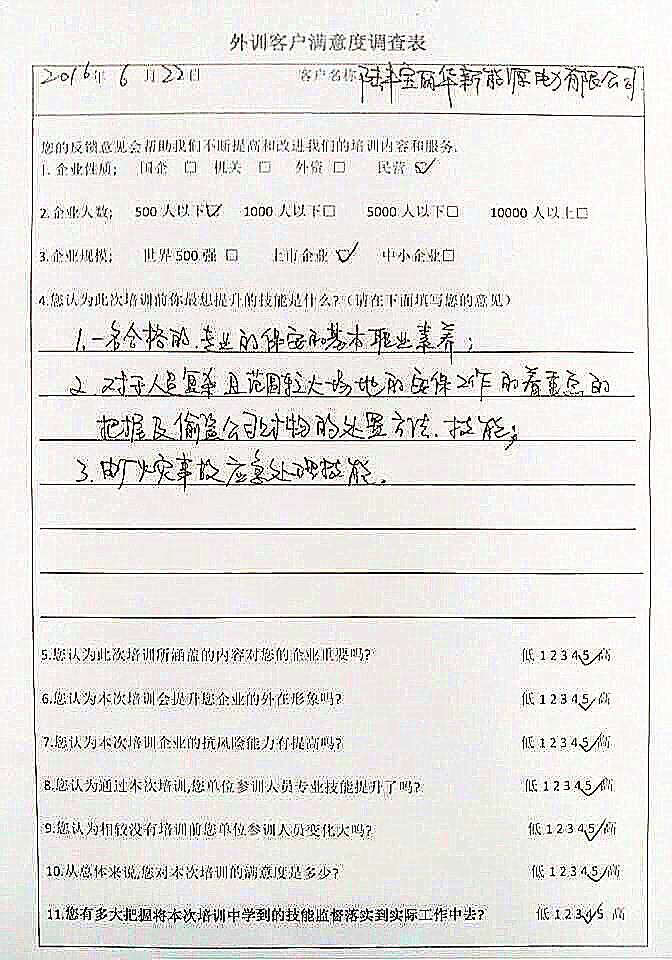 外训客户满意度调查表
2016年 6月22日 客户名称 陆丰宝丽华新能源电力有限公司
您的反馈意见会帮助我们不断提高和改进我们的培训内容和服务.
1. 企业性质; 国企 □ 机关 □ 外资 □ 民营 ☑
2.企业人数; 500人以下☑ 1000人以下□ 5000人以下□ 10000人以上□
3.企业规模; 世界500强 □ 上市企业 ☑ 中小企业□
4.您认为此次培训前你最想提升的技能是什么?(请在下面填写您的意见)
1.一名合格的、专业的保安的基本职业素养;
2.对于人员复杂且范围较大场地的安保工作的着重点的
把握及偷盗公司财物的处置方法、技能;
3.电厂火灾事故应急处理技能。
5.您认为此次培训所涵盖的内容对您的企业重要吗? 低 1 2 3 4 5 高
6.您认为本次培训会提升您企业的外在形象吗? 低 1 2 3 4 5 高
7.您认为本次培训企业的抗风险能力有提高吗? 低 1 2 3 4 5 高
8.您认为通过本次培训,您单位参训人员专业技能提升了吗? 低 1 2 3 4 5 高
9.您认为相较没有培训前您单位参训人员变化大吗? 低 1 2 3 4 5 高
10.从总体来说,您对本次培训的满意度是多少? 低 1 2 3 4 5 高
11.您有多大把握将本次培训中学到的技能监督落实到实际工作中去? 低 1 2 3 4 5 高